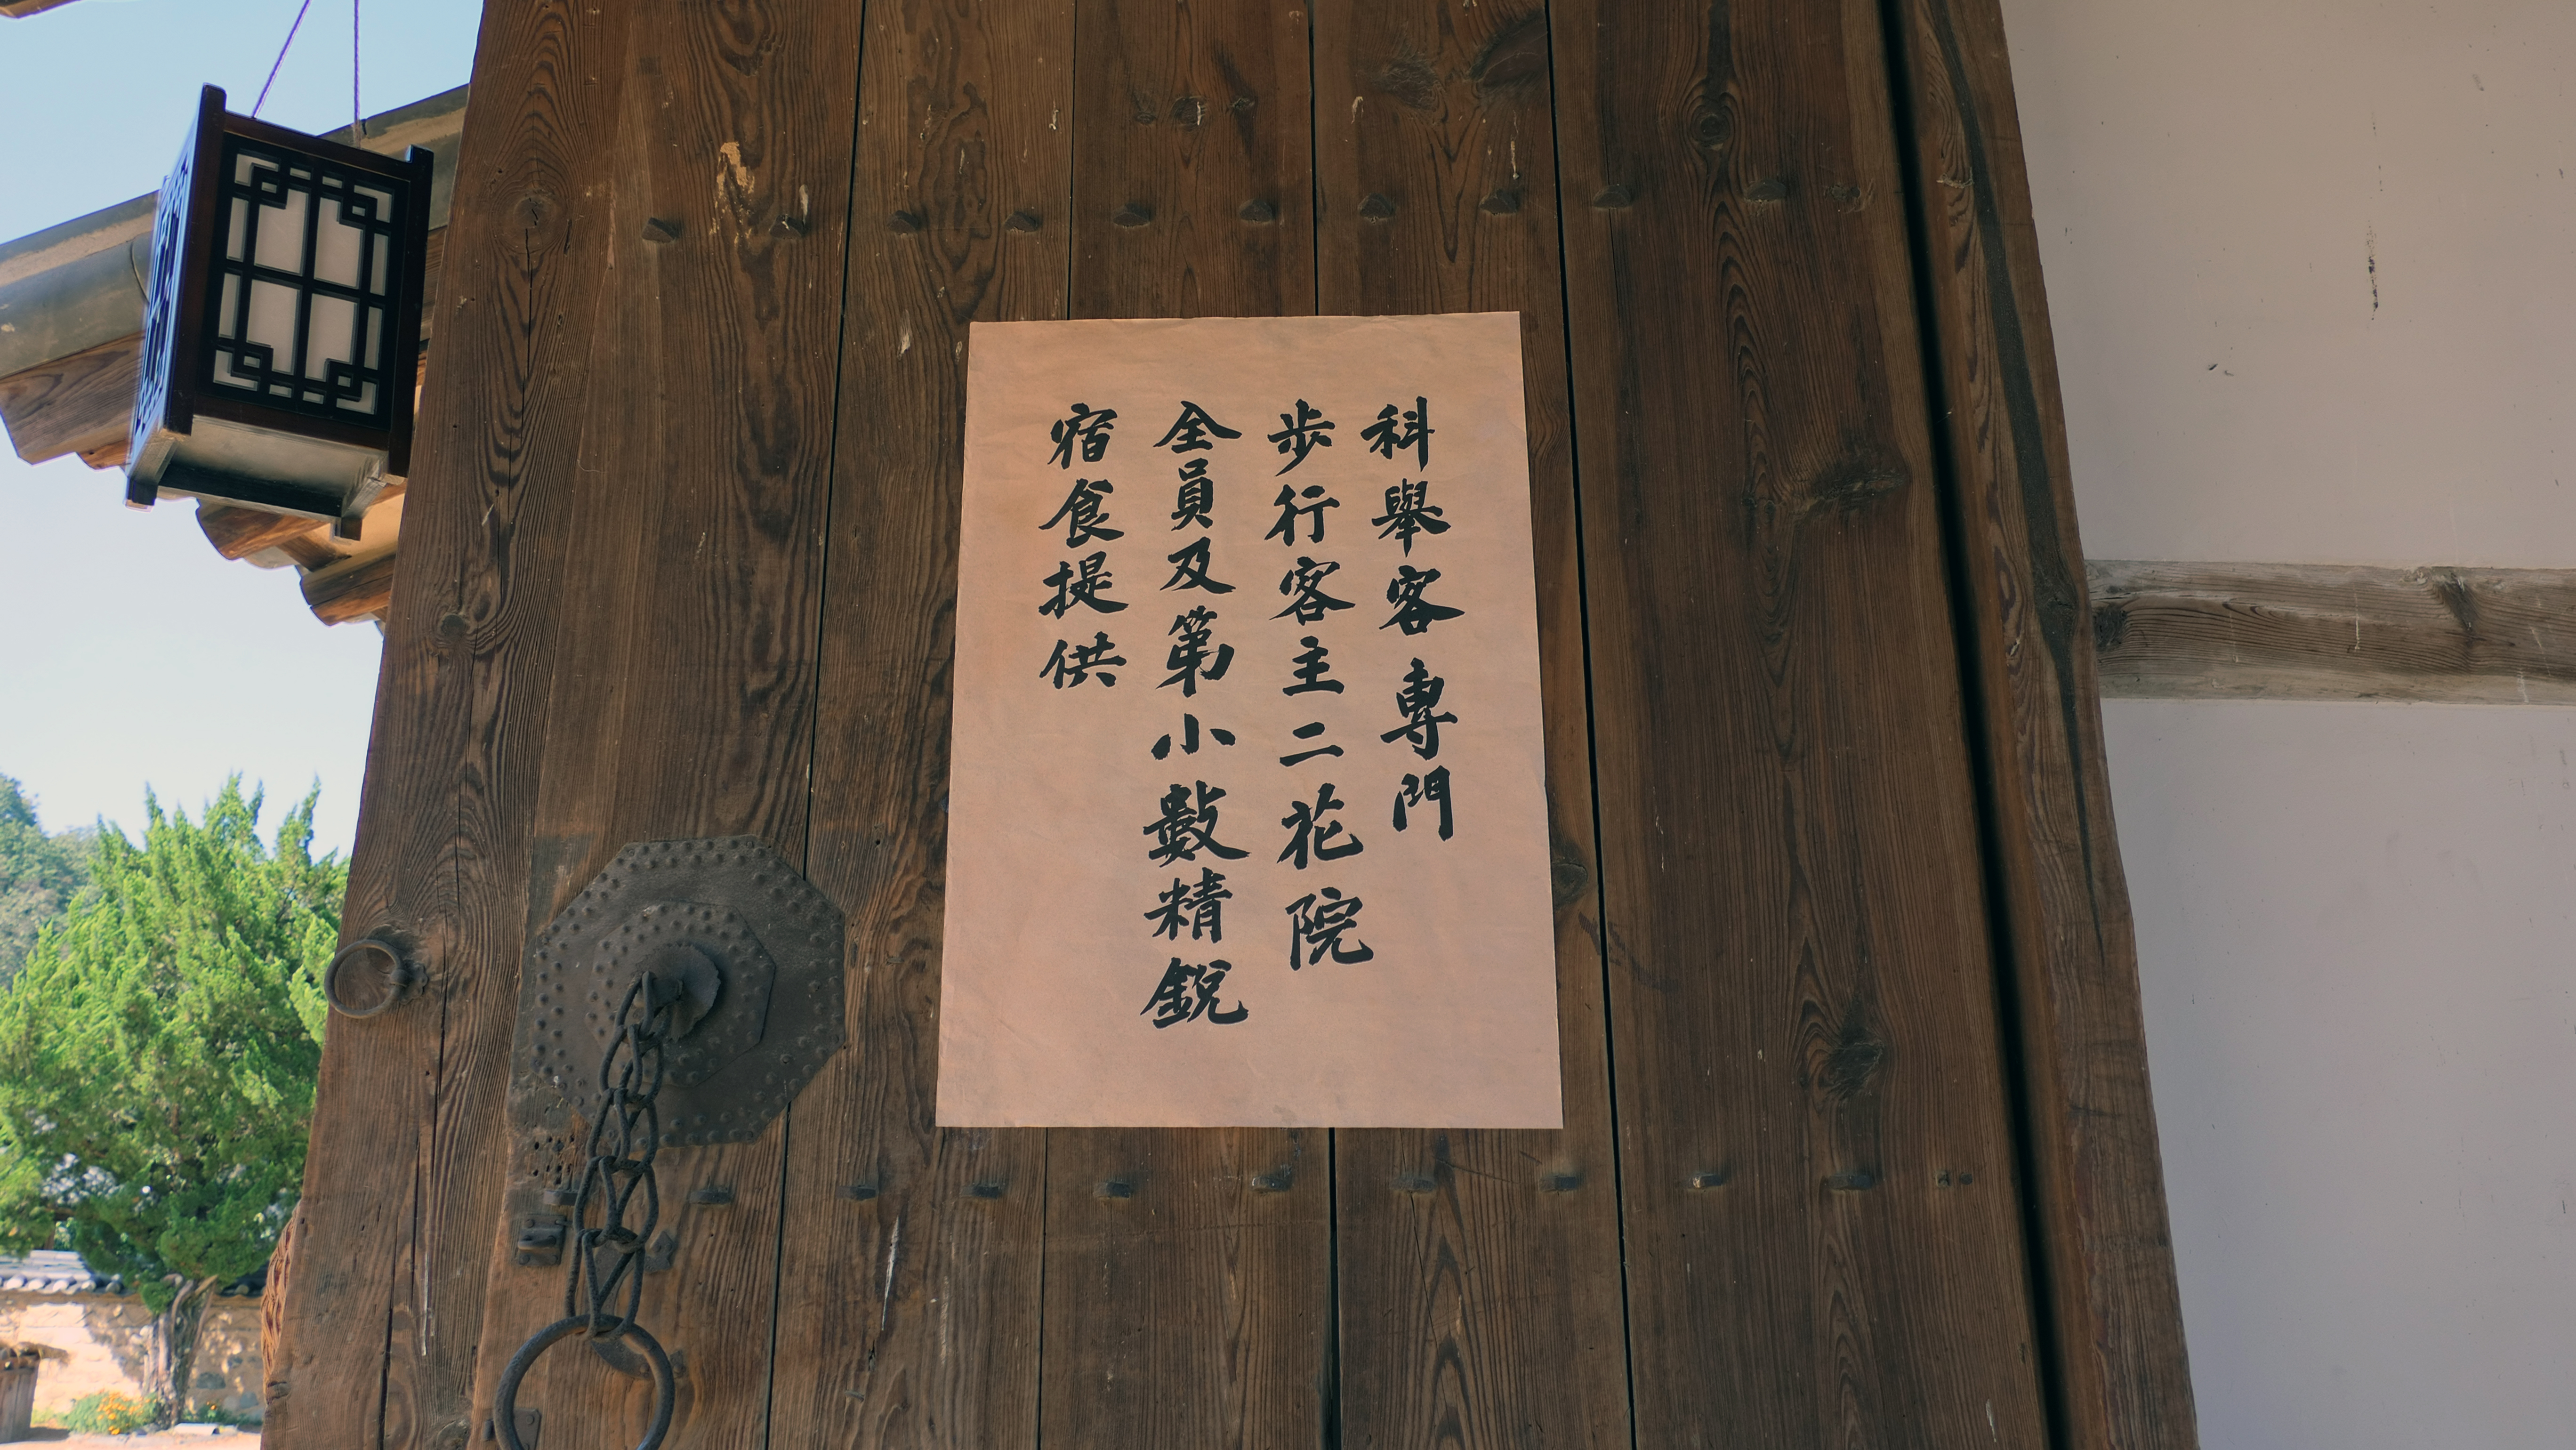 科舉客專門
步行客主二花院
全員及第小數精銳
宿食提供